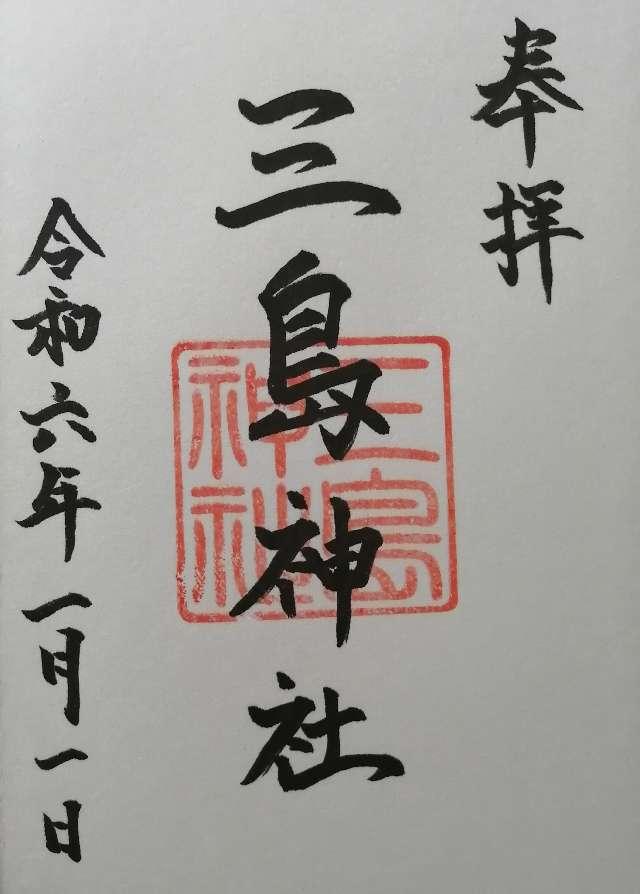 奉拝
三島神社
三島
神社
令和六年一月一日